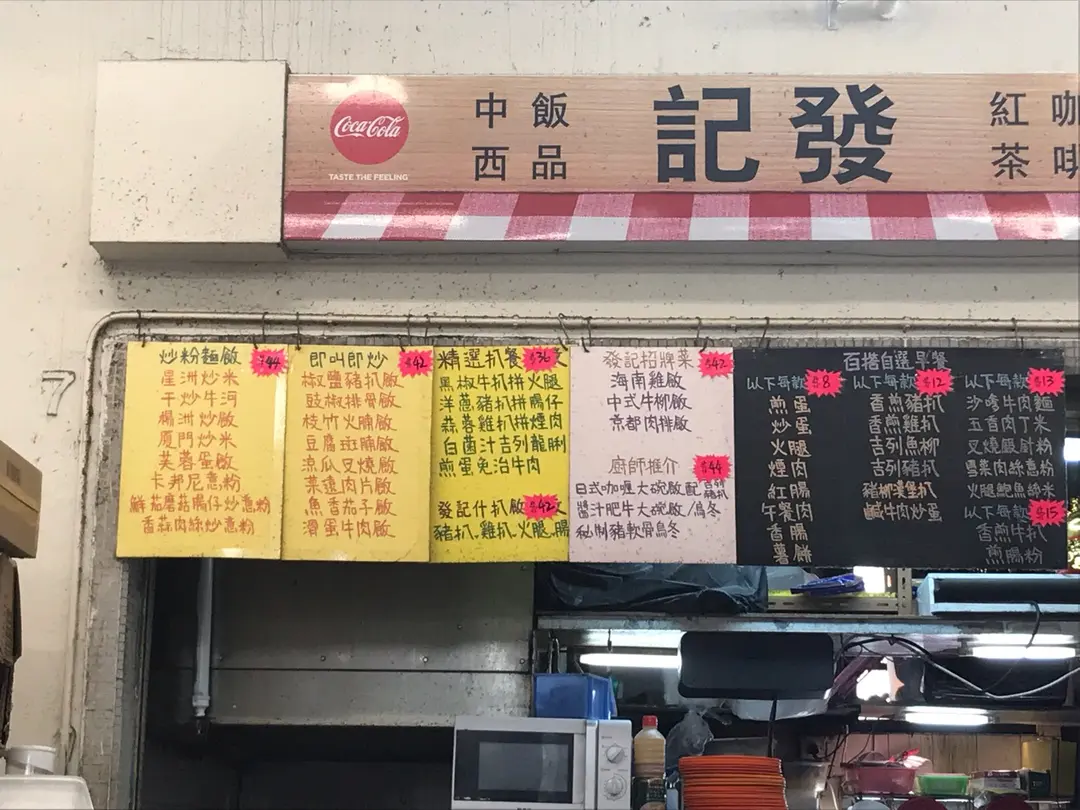 Coca-Cola
TASTE THE FEELING
中飯
西品
記發
紅咖
茶啡
7
炒粉麵飯 $44
星洲炒米
干炒牛河
楊洲炒飯
厦門炒米
芙蓉蛋飯
卡邦尼意粉
鮮茄蘑菇腸仔炒意粉
香蒜肉絲炒意粉
即叫即炒 $42
椒鹽豬扒飯
豉椒排骨飯
枝竹火腩飯
豆腐斑腩飯
涼瓜叉燒飯
菜遠肉片飯
魚香茄子飯
滑蛋牛肉飯
精選扒餐 $36
黑椒牛扒拼火腿
洋蔥豬扒拼腸仔
蒜蓉雞扒拼煙肉
白菌汁吉列龍脷
煎蛋免治牛肉
發記什扒飯 $42
豬扒、雞扒、火腿、腸
發記招牌菜 $42
海南雞飯
中式牛柳飯
京都肉排飯
廚師推介 $44
日式咖喱大碗飯配
醬汁肥牛大碗飯/烏冬
秘制豬軟骨烏冬
百搭自選早餐
以下每款 $8
煎蛋
炒蛋
火腿
煙肉
紅腸
午餐肉
香腸
薯餅
以下每款 $12
香煎豬扒
香煎雞扒
吉列魚柳
吉列豬扒
豬柳漢堡扒
鹹牛肉炒蛋
以下每款 $13
沙嗲牛肉麵
五香肉丁米
叉燒銀針粉
雪菜肉絲意粉
火腿鮑魚絲米
以下每款 $15
香煎牛扒
煎腸粉